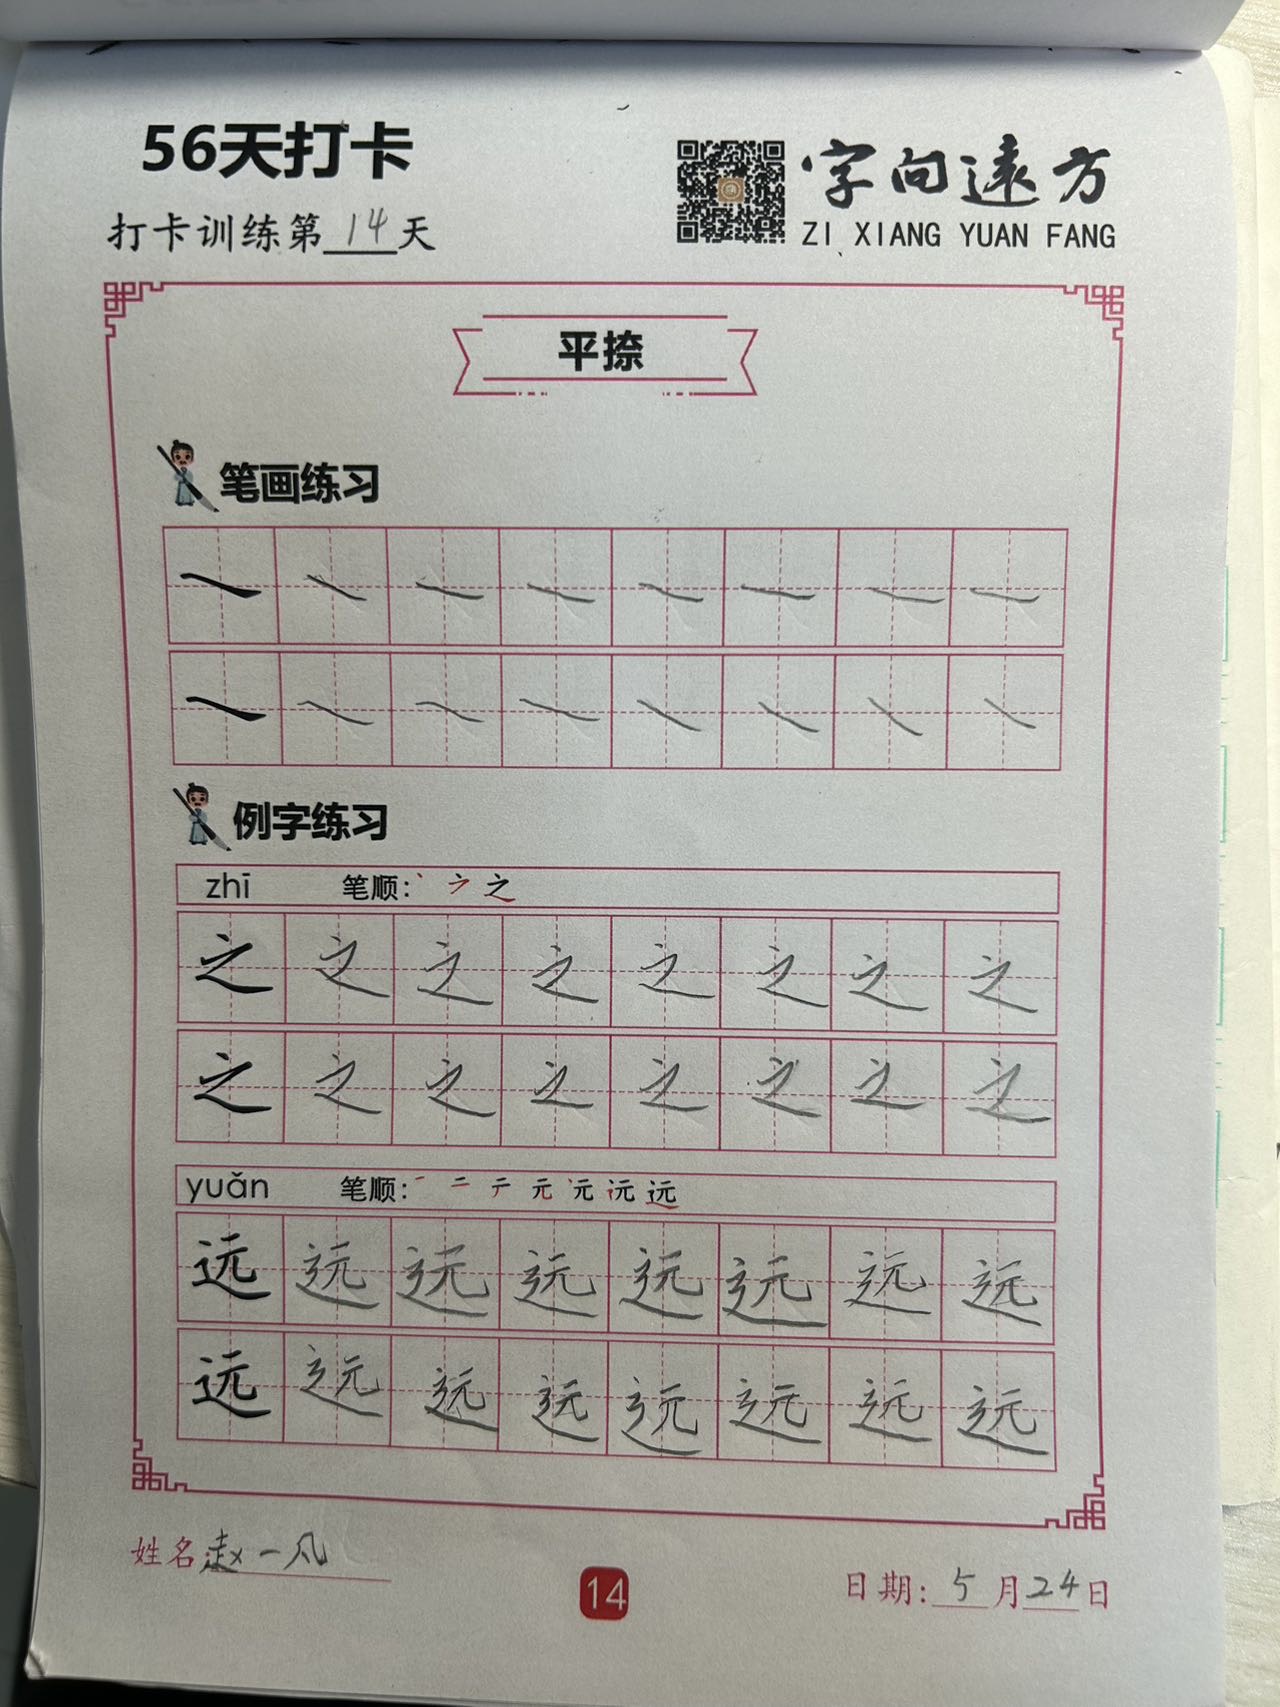 56天打卡
打卡训练第14天
字向遠方
ZI XIANG YUAN FANG
平捺
笔画练习
例字练习
zhī 笔顺: 丶 之
之 之 之 之 之 之 之 之
之 之 之 之 之 之 之 之
yuǎn 笔顺: 一 二 テ 元 元 远 远
远 远 远 远 远 远 远 远
远 远 远 远 远 远 远 远
姓名:赵一凡
14
日期:5月24日